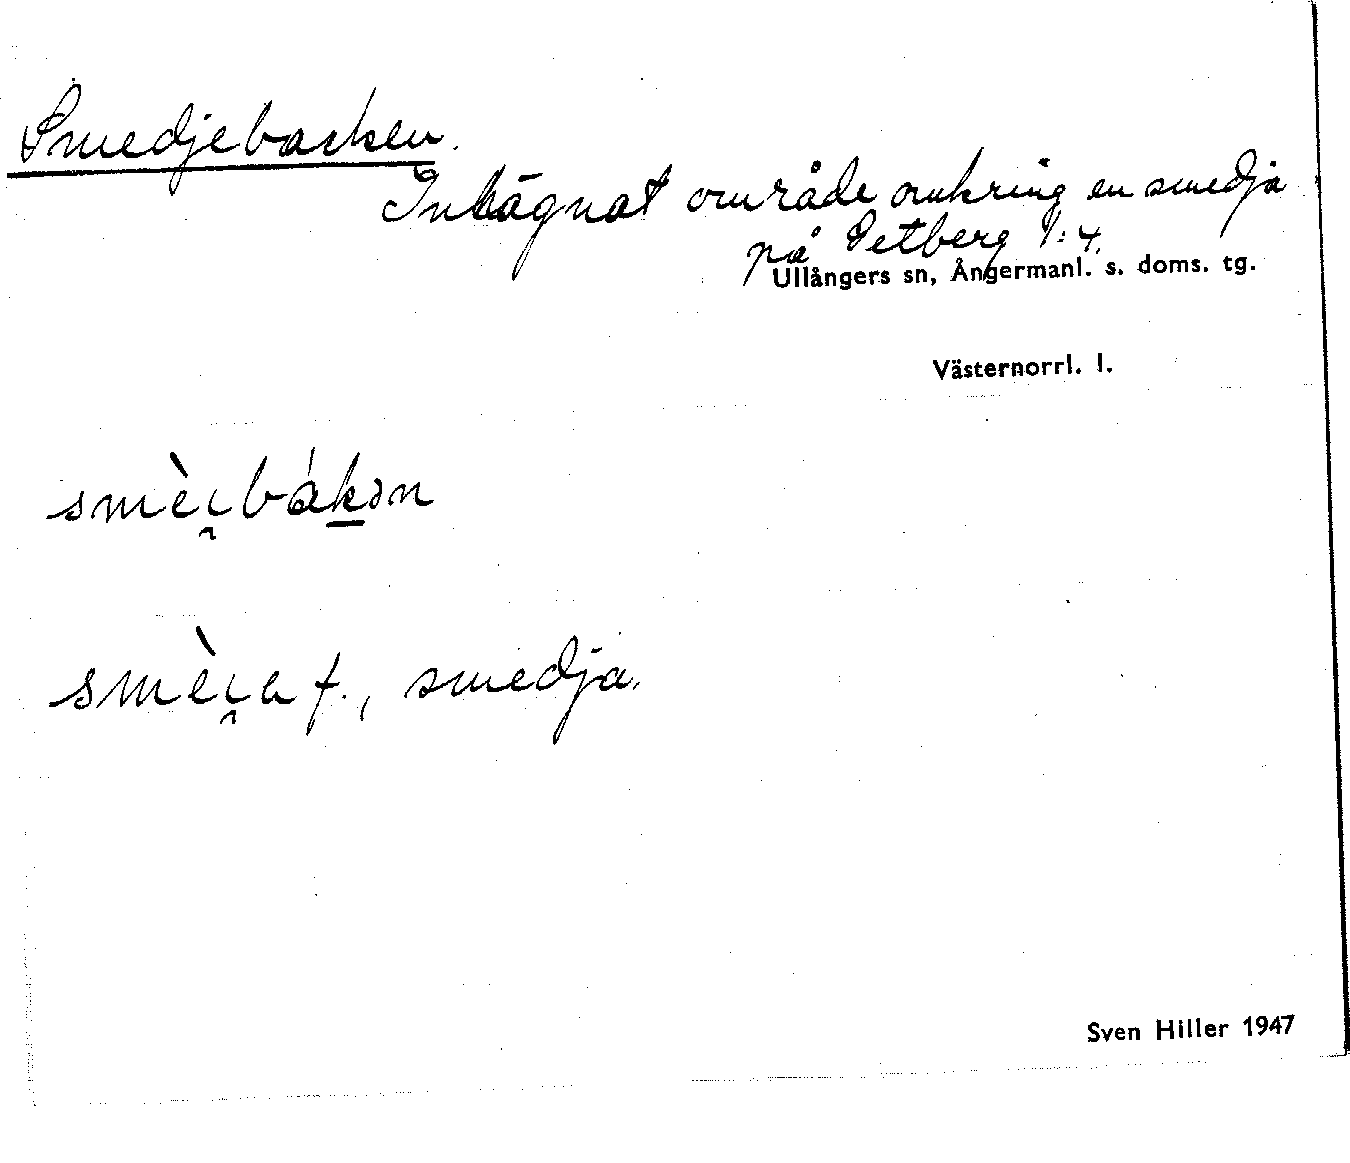 Smedjebacken.
Inhägnat område omkring en smedja
på Getberg 1:4.
Ullångers sn, Ångermanl. s. doms. tg.
Västernorrl. l.
smèi̯bák̲ən
smèi̯a f., smedja.
Sven Hiller 1947